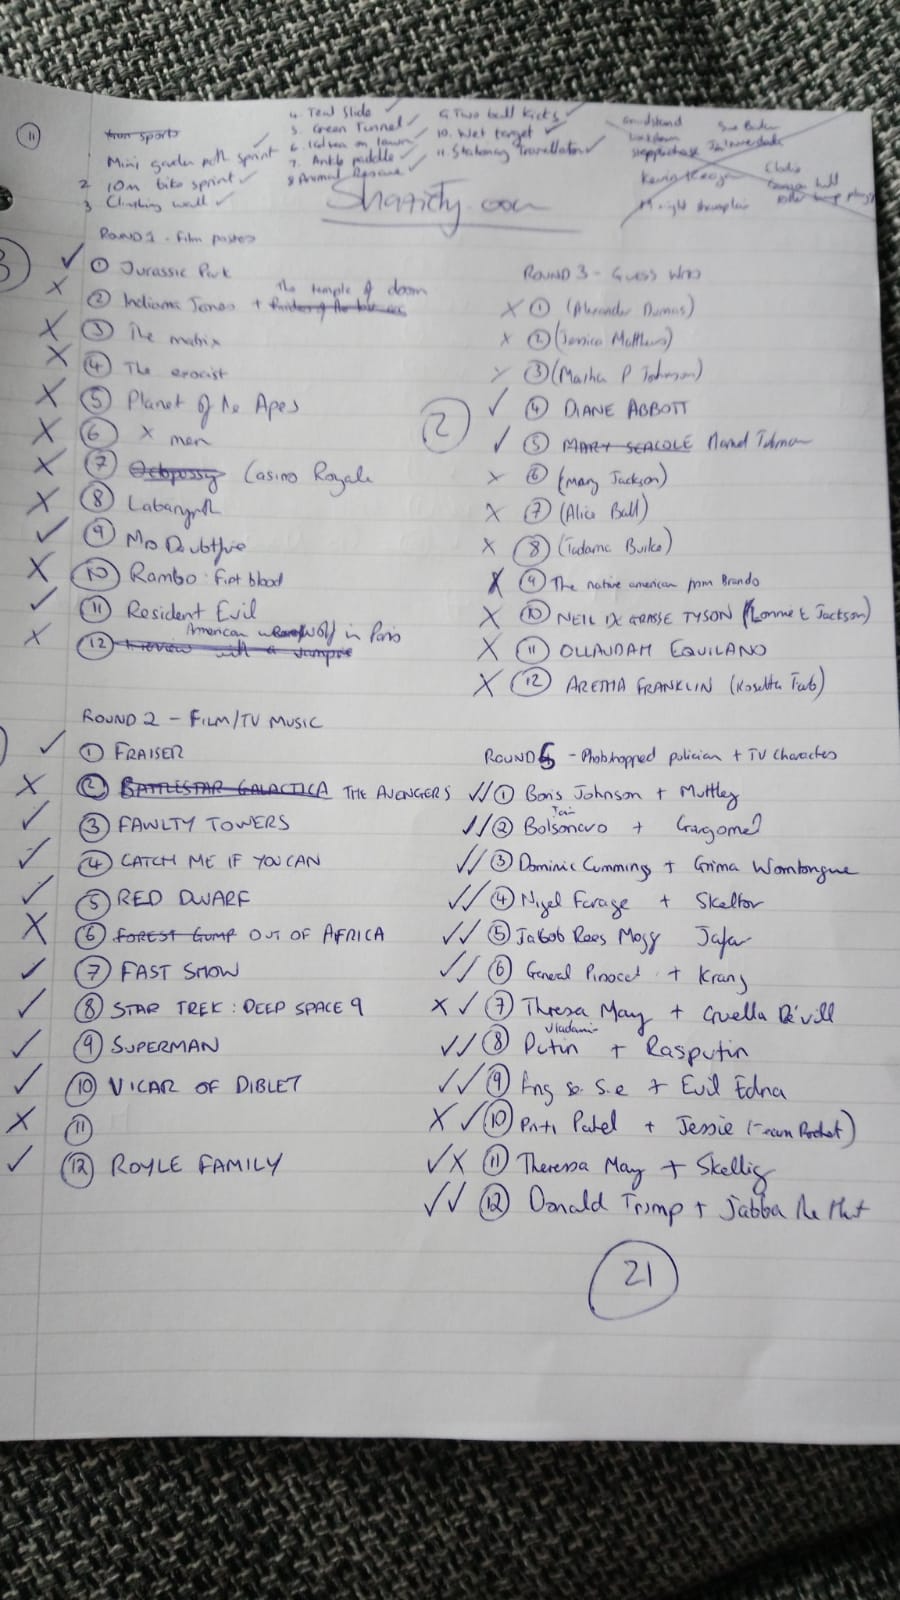 11
Mini garden path sprint
2 10m bike sprint ✓
3 Climbing wall ✓
4. Teal Slide ✓
5. Green Tunnel ✓
6. on lawn ✓
7. Ankle paddle ✓
8 Animal Rescue ✓
9. Two ball kicks ✓
10. Net target ✓
11. Stationary Travellator ✓
Grandstand
Sue Barker
Kevin Keegan
ROUND 1 - Film posters
3
✓ 1 Jurassic Park
X 2 Indiana Jones + The temple of doom
X 3 The matrix
X 4 The exocist
X 5 Planet of the Apes
X 6 X men
X 7 Octopussy Casino Royale
X 8 Labarynth
✓ 9 Mrs Doubtfire
X 10 Rambo: First blood
✓ 11 Resident Evil
X 12 Interview with a vampire American Werewolf in Paris
ROUND 2 - FILM/TV MUSIC
✓ 1 FRAISER
X 2 BATTLESTAR GALACTICA THE AVENGERS
✓ 3 FAWLTY TOWERS
✓ 4 CATCH ME IF YOU CAN
✓ 5 RED DWARF
X 6 FOREST GUMP OUT OF AFRICA
✓ 7 FAST SHOW
✓ 8 STAR TREK: DEEP SPACE 9
✓ 9 SUPERMAN
✓ 10 VICAR OF DIBLET
X 11
✓ 12 ROYLE FAMILY
ROUND 3 - GUESS WHO
2
X 1 (Alexander Dumas)
X 2 (Jessica Matthews)
X 3 (Masha P Johnson)
✓ 4 DIANE ABBOTT
✓ 5 MARY SEACOLE
X 6 (Mary Jackson)
X 7 (Alice Ball)
X 8 (Tadama Burke)
X 9 The native american from Brando
X 10 NEIL DE GRASSE TYSON (Lonnie E Jackson)
X 11 OLLAUDAH EQUILANO
X 12 ARETHA FRANKLIN
ROUND - Photoshopped politician + TV Characters
✓✓ 1 Boris Johnson + Muttley
✓✓ 2 Jair Bolsonaro + Gargomel
✓✓ 3 Dominic Cummings + Grima Wormtongue
✓✓ 4 Nigel Farage + Skeltor
✓✓ 5 Jakob Rees Mogg Jafar
✓✓ 6 General Pinocet + Krang
X✓ 7 Theresa May + Cruella De'vill
✓✓ 8 Vladamir Putin + Rasputin
✓✓ 9 + Evil Edna
X✓ 10 Priti Patel + Jessie (Team Rocket)
✓X 11 Theressa May + Skellig
✓✓ 12 Donald Trump + Jabba the Hut
21